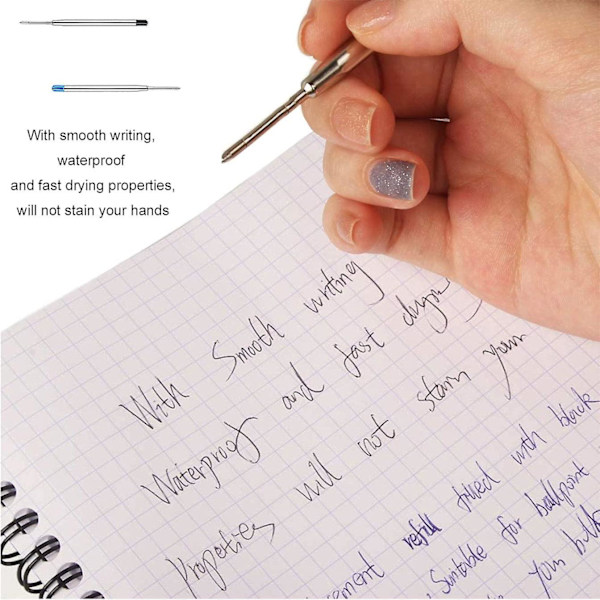 With smooth writing,
waterproof
and fast drying properties,
will not stain your hands
With Smooth writing
Waterproof and fast drying
Properties will not stain your
refill filled with black
Suitable for ballpoint
your